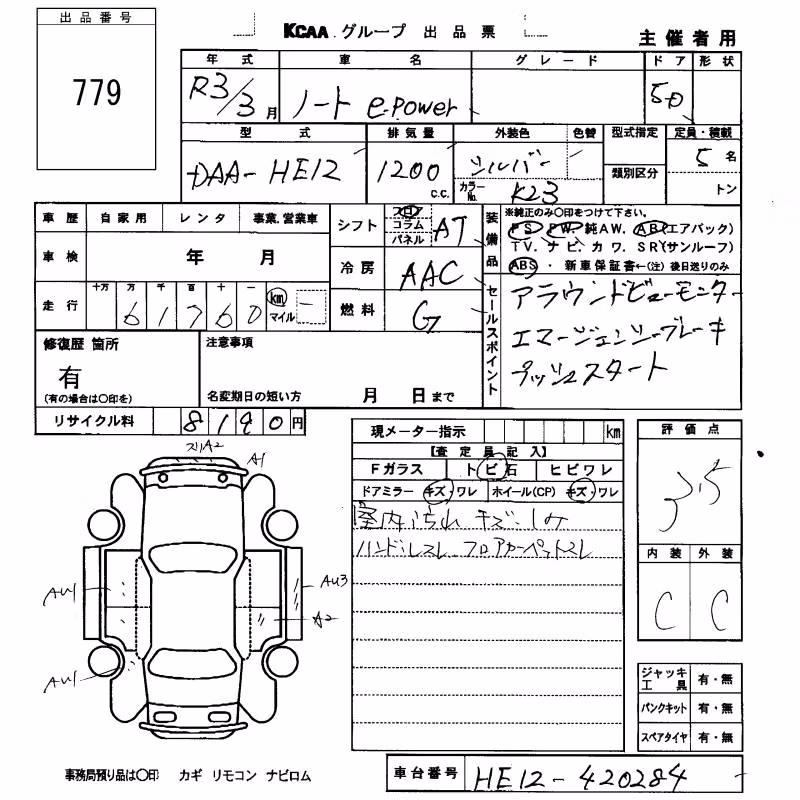 出品番号
779
KCAA グループ 出品票
主催者用
年式 車名 グレード ドア 形状
R3/3月 ノート e-power 5D
型式 排気量 外装色 色替 型式指定 定員・積載
DAA-HE12 1200 c.c. シルバー 類別区分 5名
カラーNo. K23 トン
車歴 自家用 レンタ 事業.営業車
シフト フロア コラム パネル AT
装備品
※純正のみ○印をつけて下さい。
PS PW. 純AW. AB(エアバック)
TV. ナビ. カワ. SR(サンルーフ)
ABS ・ 新車保証書←(注) 後日送りのみ
車検 年 月
冷房 AAC
走行 十万 万 千 百 十 一
61760 km マイル
燃料 G
セールスポイント
アラウンドビューモニター
エマージェンシーブレーキ
プッシュスタート
修復歴 箇所
有
(有の場合は○印を)
注意事項
名変期日の短い方 月 日まで
リサイクル料 8190円
現メーター指示 km
【査定員記入】
Fガラス トビ石 ヒビワレ
ドアミラー キズ・ワレ ホイール(CP) キズ・ワレ
室内汚れ キズ・シミ
ハンドルスレ フロアカーペットスレ
評価点
3.5
内装 外装
C C
スリA2
A1
AU1
AU3
A2
AU1
ジャッキ工具 有・無
パンクキット 有・無
スペアタイヤ 有・無
事務局預り品は○印 カギ リモコン ナビロム
車台番号 HE12-420284